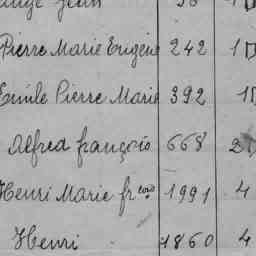 Jean
Pierre Marie Eugène 242 1
Emile Pierre Marie 392 1
Alfred françois 668 2
Henri Marie frçois 1991 4
Henri 1860 4